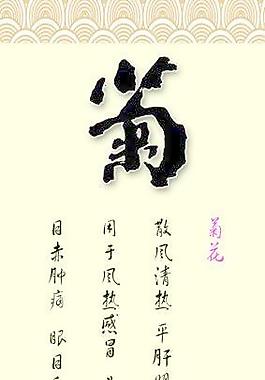 菊
菊花
散风清热 平肝
用于风热感冒
目赤肿痛 眼目